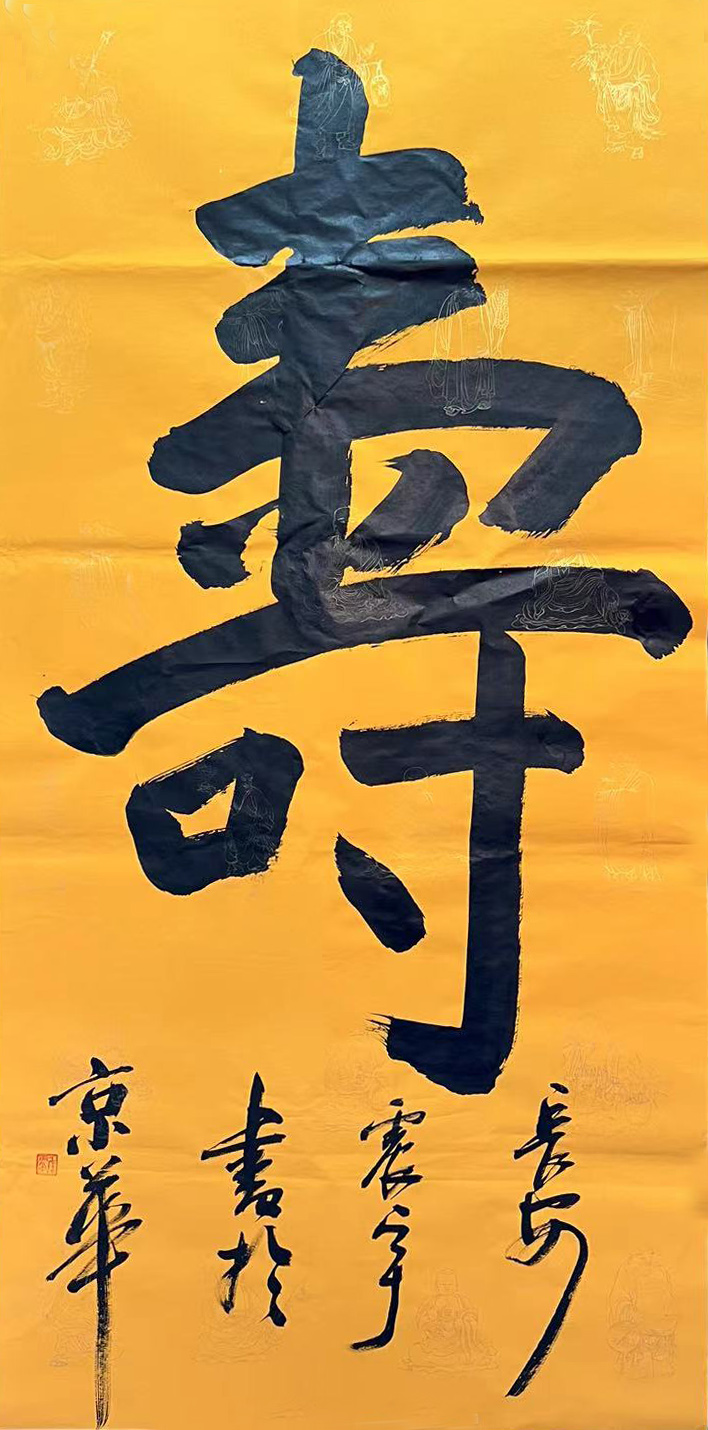 壽
長安
震宇
書於
京華